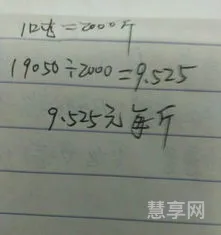 1吨=2000斤
19050÷2000=9.525
9.525元每斤
慧享网